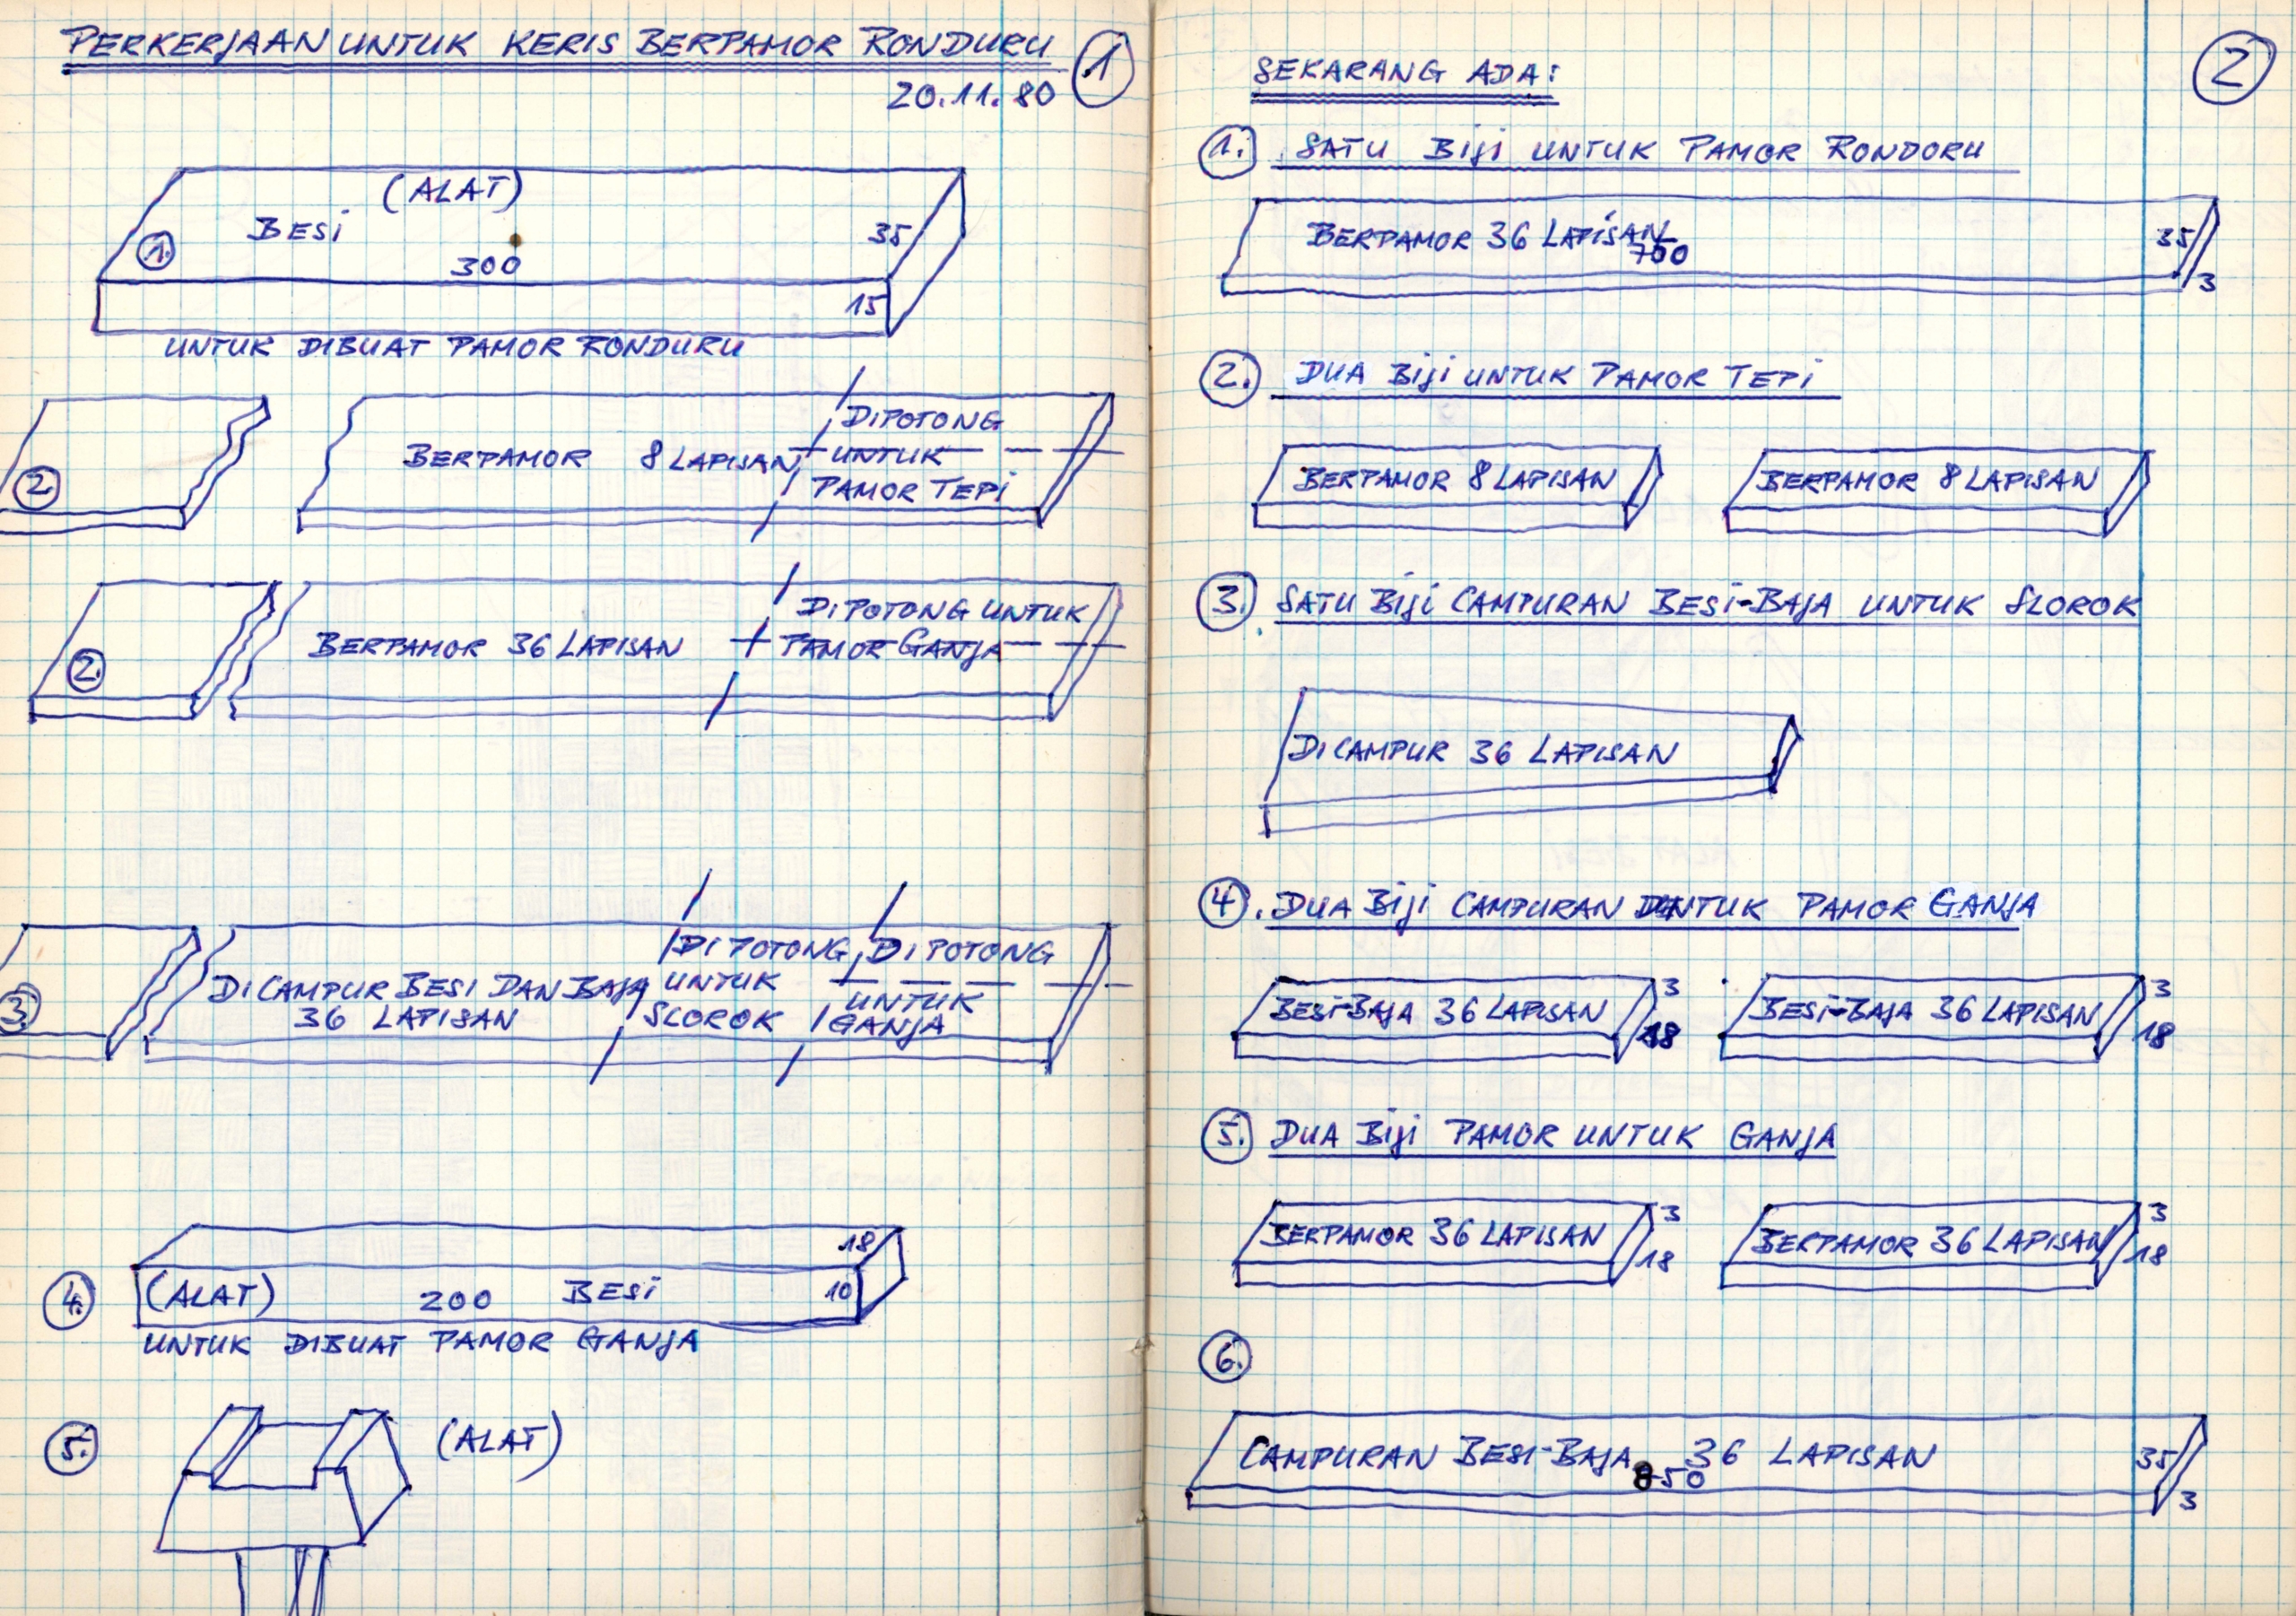 PERKERJAAN UNTUK KERIS BERPAMOR RONDURU
1
20.11.80
(ALAT)
BESI
1.
300
35
15
UNTUK DIBUAT PAMOR RONDURU
2.
BERPAMOR 8 LAPISAN
DIPOTONG
UNTUK
PAMOR TEPI
2.
BERPAMOR 36 LAPISAN
DIPOTONG UNTUK
PAMOR GANJA
3.
DICAMPUR BESI DAN BAJA
36 LAPISAN
DIPOTONG
UNTUK
SLOROK
DIPOTONG
UNTUK
GANJA
4.
(ALAT) 200 BESI
18
10
UNTUK DIBUAT PAMOR GANJA
5.
(ALAT)
2
SEKARANG ADA:
1. SATU BIJI UNTUK PAMOR RONDORU
BERPAMOR 36 LAPISAN
700
35
3
2. DUA BIJI UNTUK PAMOR TEPI
BERPAMOR 8 LAPISAN
BERPAMOR 8 LAPISAN
3. SATU BIJI CAMPURAN BESI-BAJA UNTUK SLOROK
DICAMPUR 36 LAPISAN
4. DUA BIJI CAMPURAN UNTUK PAMOR GANJA
BESI-BAJA 36 LAPISAN
3
18
BESI-BAJA 36 LAPISAN
3
18
5. DUA BIJI PAMOR UNTUK GANJA
BERPAMOR 36 LAPISAN
3
18
BERPAMOR 36 LAPISAN
3
18
6.
CAMPURAN BESI-BAJA 36 LAPISAN
850
35
3